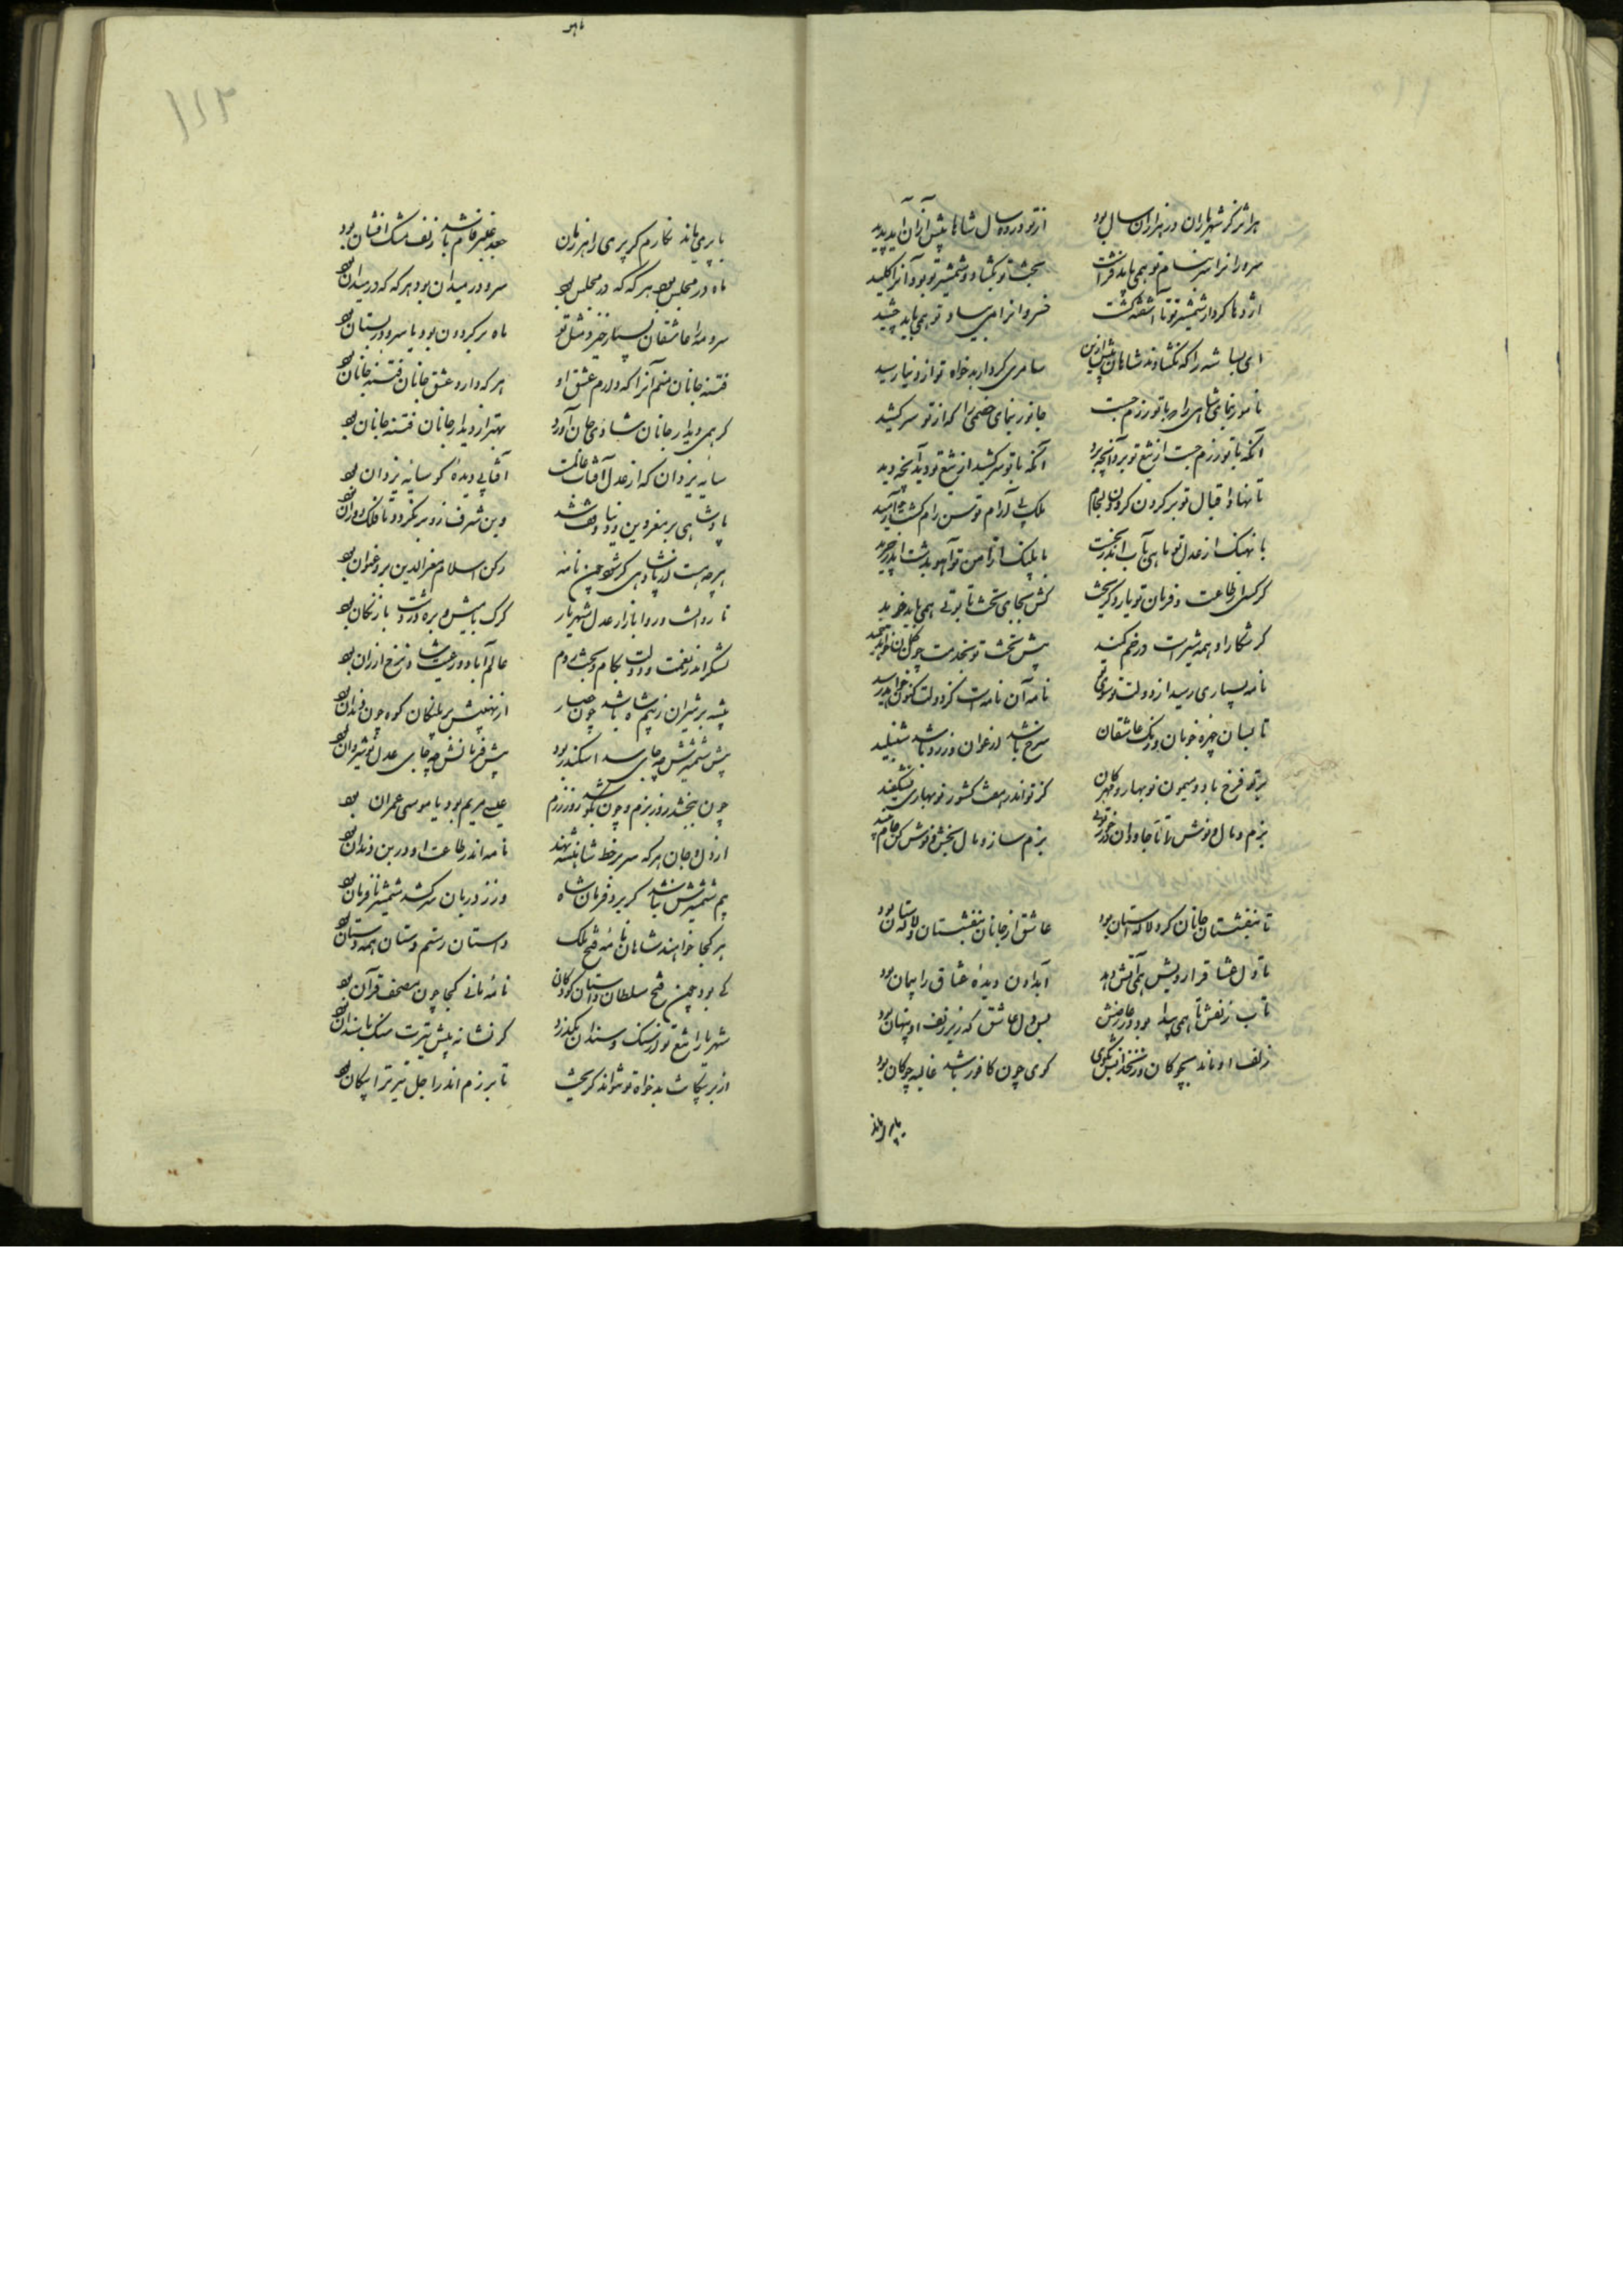 هر اثر کز شهریاران در هزاران سال بود
از تو در ده سال شاها بیش از آن آید پدید
سرورانرا سر بنام تو همی باید فراشت
خسروانرا می بیاد تو همی باید چشید
اژدها کردار شمشیر تو تا آشفته گشت
ای بسا شه را که نگشادند شاهان پیش ازین
بخت تو بگشاد و شمشیر تو بود آنرا کلید
سامری کردار بدخواه تو از دنیا رمید
نامور نمای شاهی را که با تو رزم جست
جانور نمای خصمی را که از تو سر کشید
آنکه با تو رزم جست از تیغ تو برد آنچه برد
آنکه با تو سر کشید از تیغ تو دید آنچه دید
تا نهاد اقبال تو بر گردن گردون لجام
ملک بی آرام توسن رام گشت و آرمید
با نهنگ از عدل تو ماهی بآب اندر بخفت
با پلنگ از امن تو آهو بدشت اندر چرید
گر کسی از طاعت و فرمان تو یارد گریخت
کش بجای تخت تابوتی همی باید خرید
گر شکار او همه شیرست در خم کمند
پیش تخت تو بخدمت چون کمان خواهد خمید
نامه بسیاری رسید از دولت تو سوی تو
نامه آن نامه است کز دولت کنون خواهد رسید
تا بسان چهره خوبان و رنگ عاشقان
سرخ باشد ارغوان و زرد باشد شنبلید
بر تو فرخ باد و میمون نوبهار و مهرگان
کز تو اندر هفت کشور نوبهاری بشکفید
بزم ساز و مال بخش و نوش کن جام نبید

تا بنفشستان جانان گرد لالستان بود
عاشق از جانان بنفشستان و لالستان بود
تا دل عشاق را رویش همی آتش دهد
آب دادن دیدهٔ عشاق را پیمان بود
تاب زلفش تا همی پیدا بود در عارضش
بس دل عاشق که زیر زلف او پنهان بود
زلف او ماند بچوگان و زنخدانش بگوی
گوی چون کافور باشد غالیه چوگان بود
با پری ماند
با پری ماند نگارم گر پری را هر زمان
جعد عنبرفام باشد زلف مشک افشان بود
ماه در مجلس بود هر گه که در مجلس بود
سرو در میدان بود هر گه که در میدان بود
سرو و مه را عاشقان بسیار خیزد مثل تو
ماه بر گردون بود یا سرو در بستان بود
فتنه جانان منم آنرا که دارم عشق او
هر که دارد عشق جانان فتنه جانان بود
گر همی دیدار جانان شادئی جان آورد
بهتر از دیدار جانان فتنه جانان بود
سایه یزدان که از عدل آفتاب عالمست
آفتابی دیدهٔ کو سایه یزدان بود
پادشاهی بر معز دین و دنیا وقف شد
وین شرف زو بر نگردد تا فلک دوران بود
هر چه هست از پادشاهی گر شود چون نامه
رکن اسلام معزالدین برو عنوان بود
تا روانست و روا بازار عدل شهریار
گرگ با میش و بره در دشت بازرگان بود
لشکر اندر نعمت و دولت بکام و بخت رام
عالم آباد و رعیت شاد و نرخ ارزان بود
پشه بر شیران ز بیم شاه باشد چون حصار
از نهیبش بر پلنگان کوه چون زندان بود
پیش شمشیرش چه جای سد اسکندر بود
پیش فرمانش چه جای عدل نوشروان بود
چون ببخشد روز بزم و چون بکوشد روز رزم
عیسی مریم بود یا موسی عمران بود
از دل و جان هر که سر بر خط شاهنشه نهند
نامه اندر طاعت او در بن دندان بود
بیم شمشیرش نباشد گر برد فرمان شاه
هر کجا خوانند شاهان نامهٔ فتح ملک
داستان رستم دستان همه دستان بود
کی بود چون فتح سلطان داستان کودکان
نامهٔ مانی کجا چون مصحف قرآن بود
شهریارا تیغ تو از سنگ و سندان بگذرد
گر نشانه پیش تیرت سنگ یا سندان بود
از بر پیکانت بدخواه تو نتواند گریخت
تا برزم اندر اجل تیر ترا پیکان بود